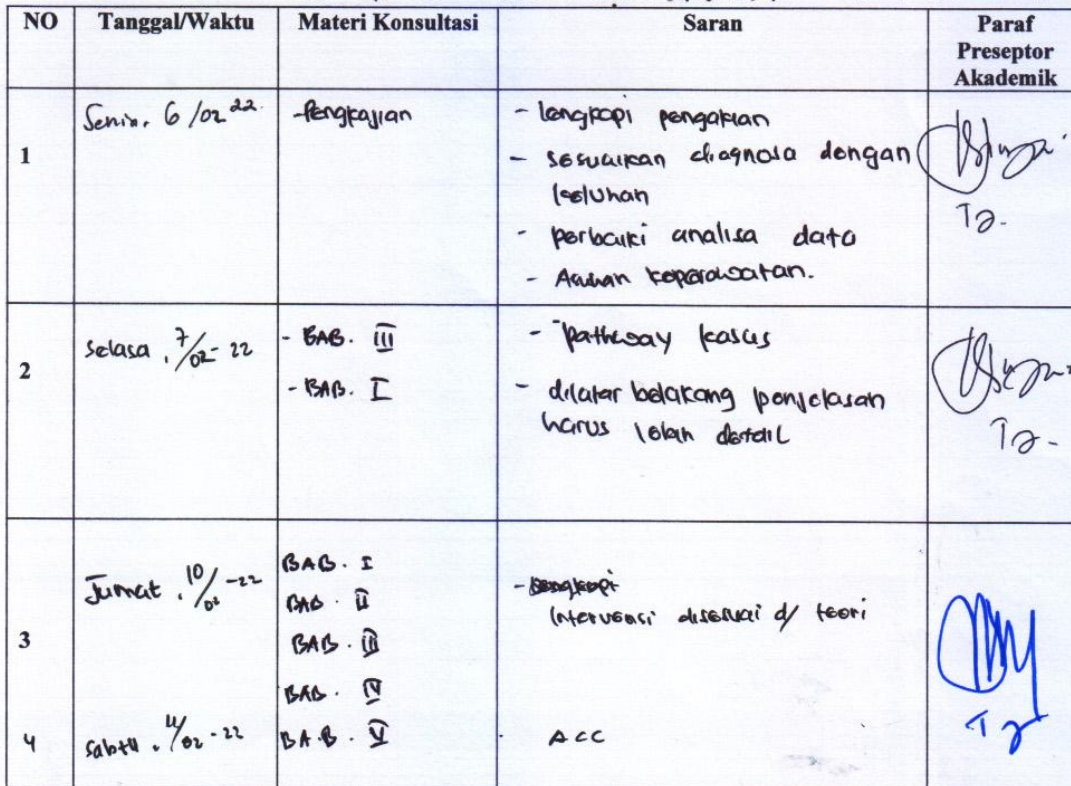 NO Tanggal/Waktu Materi Konsultasi Saran Paraf
Preseptor
Akademik
1 Senin, 6/02 22 - Pengkajian - lengkapi pengakian
- sesuaikan diagnosa dengan
keluhan
- perbaiki analisa data
- Asuhan keperawatan.
2 Selasa, 7/02-22 - BAB. III - pathway kasus
- BAB. I - dilatar belakang penjelasan
harus lebih detail
3 Jumat, 10/02-22 BAB. I
BAB. II Intervensi disesuai d/ teori
BAB. III
BAB. IV
4 Sabtu, 11/02-22 BAB. V ACC